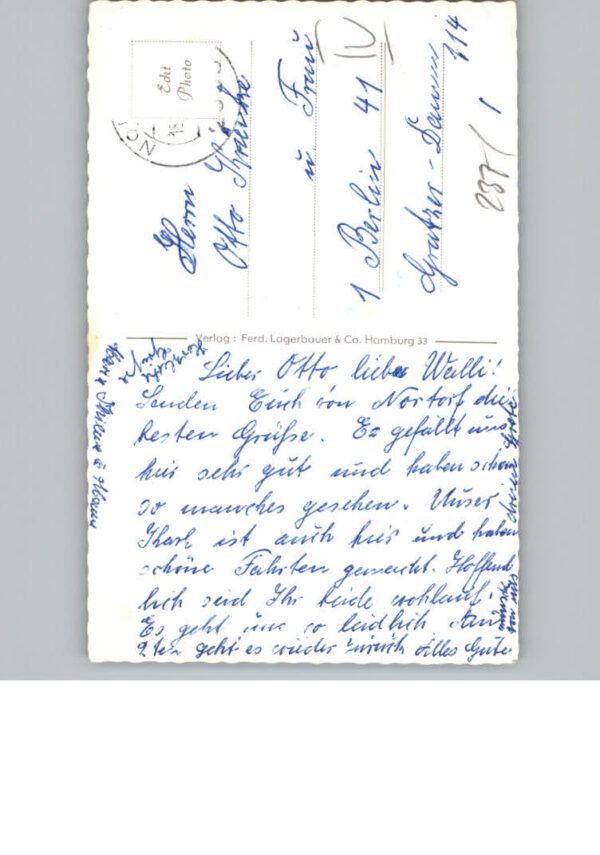 Echt
Photo
Herrn
Otto
u. Frau
IV
1 Berlin 41
Gratzer-Damm 314
237/1
Verlag: Ferd. Lagerbauer & Co. Hamburg 33
Herzliche
Grüße
Lieber Otto liebe Walli!
Senden Euch von Nortorf die
besten Grüße. Es gefällt uns
hier sehr gut und haben schon
so manches gesehen. Unser
Karl ist auch hier und haben
schöne Fahrten gemacht. Hoffend
lich seid Ihr beide wohlauf.
Es geht uns so leidlich Am
2ten geht es wieder zurück Alles Gute
von uns